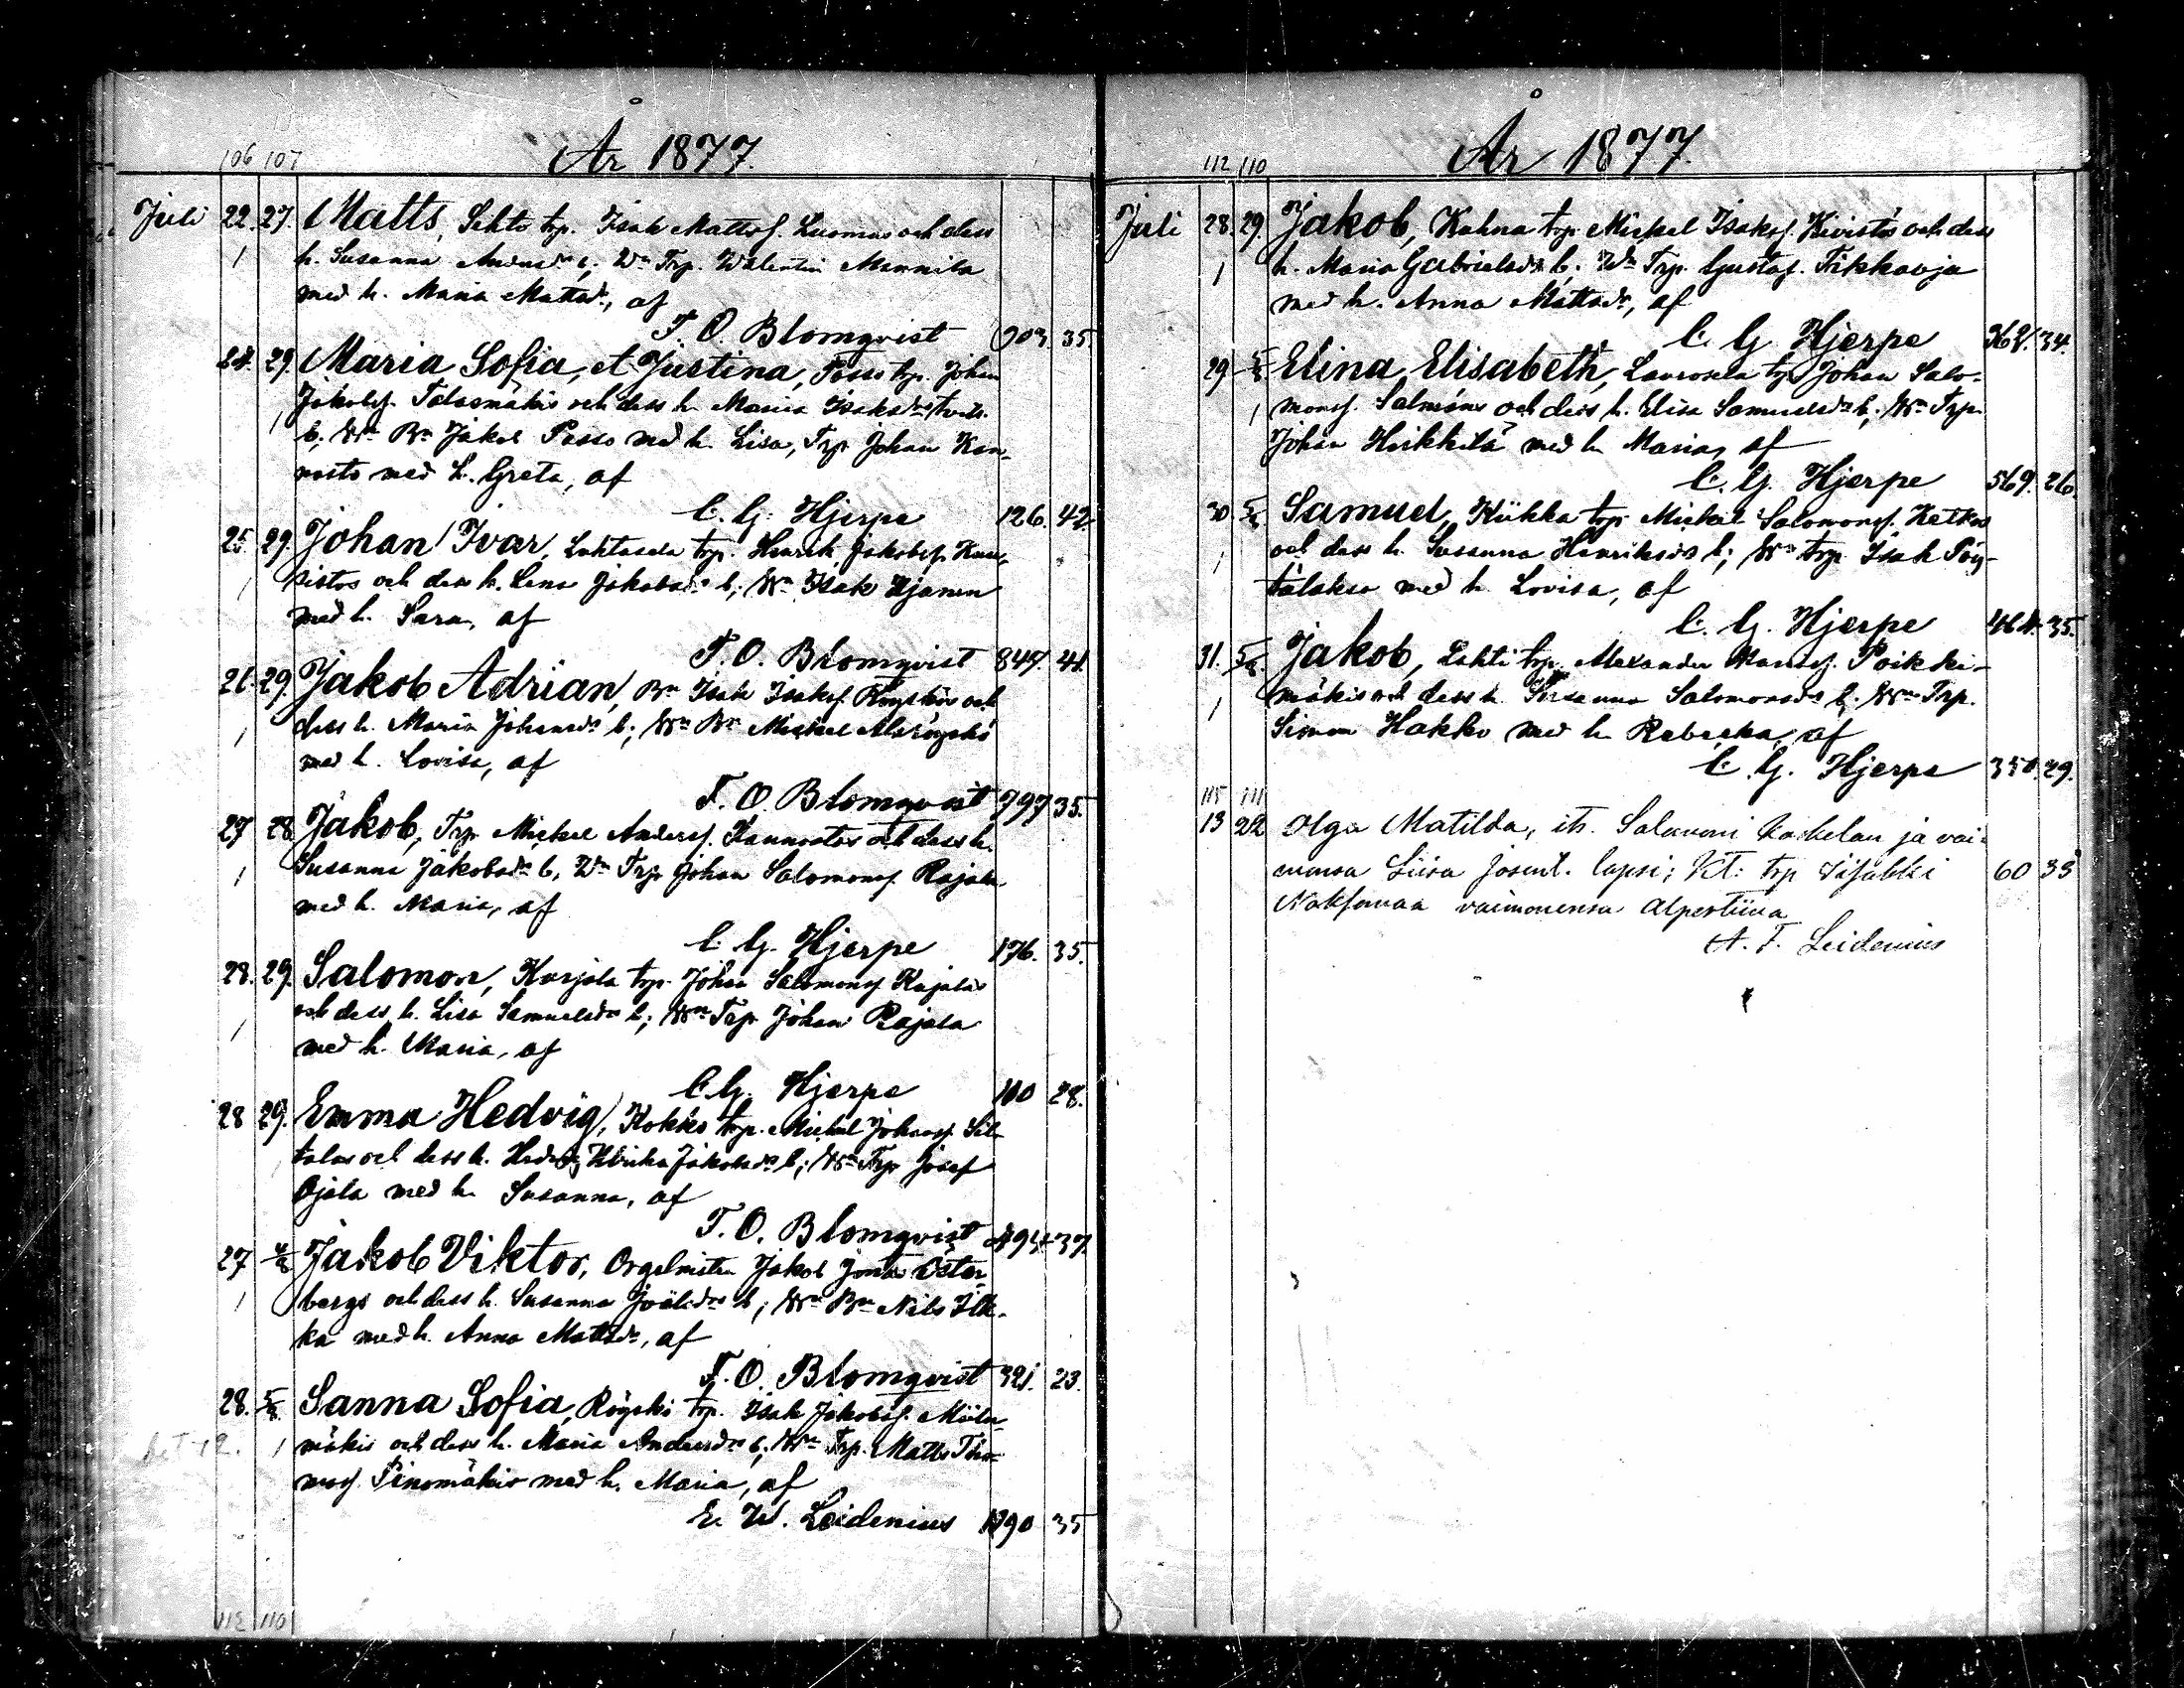 106 107
År 1877.
Juli 22. 27. Matts, Lehto trp. Isak Mattsf. Luomas och dess
1 h. Susanna Andersdr b; Wn Trp. Walentin Mannila
med h. Maria Mattsdr, af
T. O. Blomqvist 703. 35.
24. 29. Maria Sofia, et Justina, Passo trp. Johan
Jakobsf. Talasmäkis och dess h. Maria Isaksdr tvill.
b; Wn Bn Jakob Passo med h. Lisa, Trp Johan Kan-
nosto med h. Greta, af
C. G. Hjerpe 126. 42.
25 29. Johan Ivar, Luhtasela trp. Henrik Jakobsf.
1 och dess h. Lena Jakobsdr b; Wn Isak Ojanen
med h. Sara, af
T. O. Blomqvist 847. 41.
26. 29. Jakob Adrian, Bn Isak Isaksf. Röyskös och
1 dess h. Maria Johansdr b; Wn Bn Mickel Alaröyskö
med h. Lovisa, af
T. O. Blomqvist 797 35.
27 28 Jakob, Trp Mickel Andersf. Kannostos och dess h.
1 Susanna Jakobsdr b, Wn Trp Johan Salomonsf. Rajala
med h. Maria, af
C. G. Hjerpe 176. 35.
28. 29. Salomon, Karjala trp. Johan Salomonsf Rajalas
1 och dess h. Lisa Samuelsdr b; Wn Trp Johan Rajala
med h. Maria, af
C. G. Hjerpe 110 28.
28 29. Emma Hedvig, Kokko trp. Mickel Johansf. Sil-
talas och dess h. Hedvig Ulrika Jakobsdr b; Wn Trp Josef
Ojala med h. Susanna, af
T. O. Blomqvist 494 37.
27 4/8 Jakob Viktor, Orgelnisten Jakob Jonta Öster-
1 bergs och dess h. Susanna Joelsdr b; Wn Bn Nils Ilk-
ka med h. Anna Mattsdr, af
T. O. Blomqvist 321. 23.
28. 5/8. Sanna Sofia, Röyskö trp. Isak Jakobsf. Miilu-
1 mäkis och dess h. Maria Andersdr b; Wn Trp. Matts Tho-
masf. Tinomäkis med h. Maria, af
E. W. Leidenius 790 35
112 110
112 110
År 1877.
Juli 28. 29. Jakob, Kuhna trp Mickel Isaksf. Kivistös och dess
1 h. Maria Gabrielsdr b; Wn Trp. Gustaf. Tikkaoja
med h. Anna Mattsdr, af
C. G. Hjerpe 368. 34.
29 5/8 Elina Elisabeth, Laurosela trp Johan Salo-
1 monsf. Salméns och dess h. Elisa Samuelsdr b; Wn Trp.
Johan Heikkilä med h. Maria, af
C. G. Hjerpe 569. 26.
30. 5/8 Samuel, Kiikka trp. Mickel Salomonsf. Ketkos
1 och dess h. Susanna Henriksdr b; Wn trp Isak Pöy-
tälakso med h. Lovisa, af
C. G. Hjerpe 464. 35.
31. 5/8. Jakob, Lahti trp. Alexander Poikki-
1 mäkis och dess h. Susanna Salomonsdr b; Wn Trp.
Simon Hakko med h. Rebecka, af
C. G. Hjerpe 350. 29.
115 111
13 22 Olga Matilda, its. Salamoni Koskelan ja vai-
monsa Liisa Josent. lapsi; Kt: trp
vaimonensa Alpertiina 60 33
A. F. Leidenius